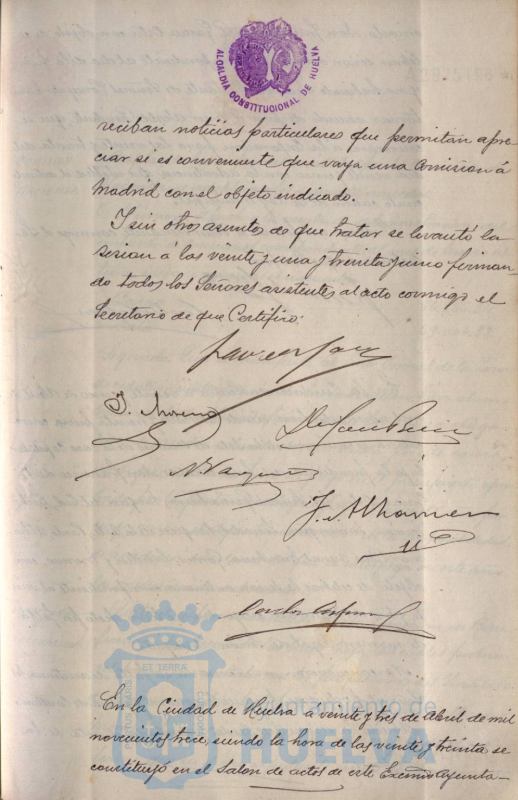 ALCALDIA CONSTITUCIONAL DE HUELVA
reciban noticias particulares que permitan apre-
ciar si es conveniente que vaya una Comision á
Madrid con el objeto indicado.
I sin otros asuntos de que tratar se levantó la
sesion á las veinte y una y treinta y cinco firman-
do todos los Señores asistentes al acto conmigo el
Secretario de que Certifico:
J. Moreno
N. Vazquez
En la Ciudad de Huelva á veinte y tres de Abril de mil
novecientos trece, siendo la hora de las veinte y treinta se
constituyó en el Salon de actos de este Excmo Ayunta-
PORTUS MARIS ET TERRAE CUSTODIA
Ayuntamiento de
HUELVA